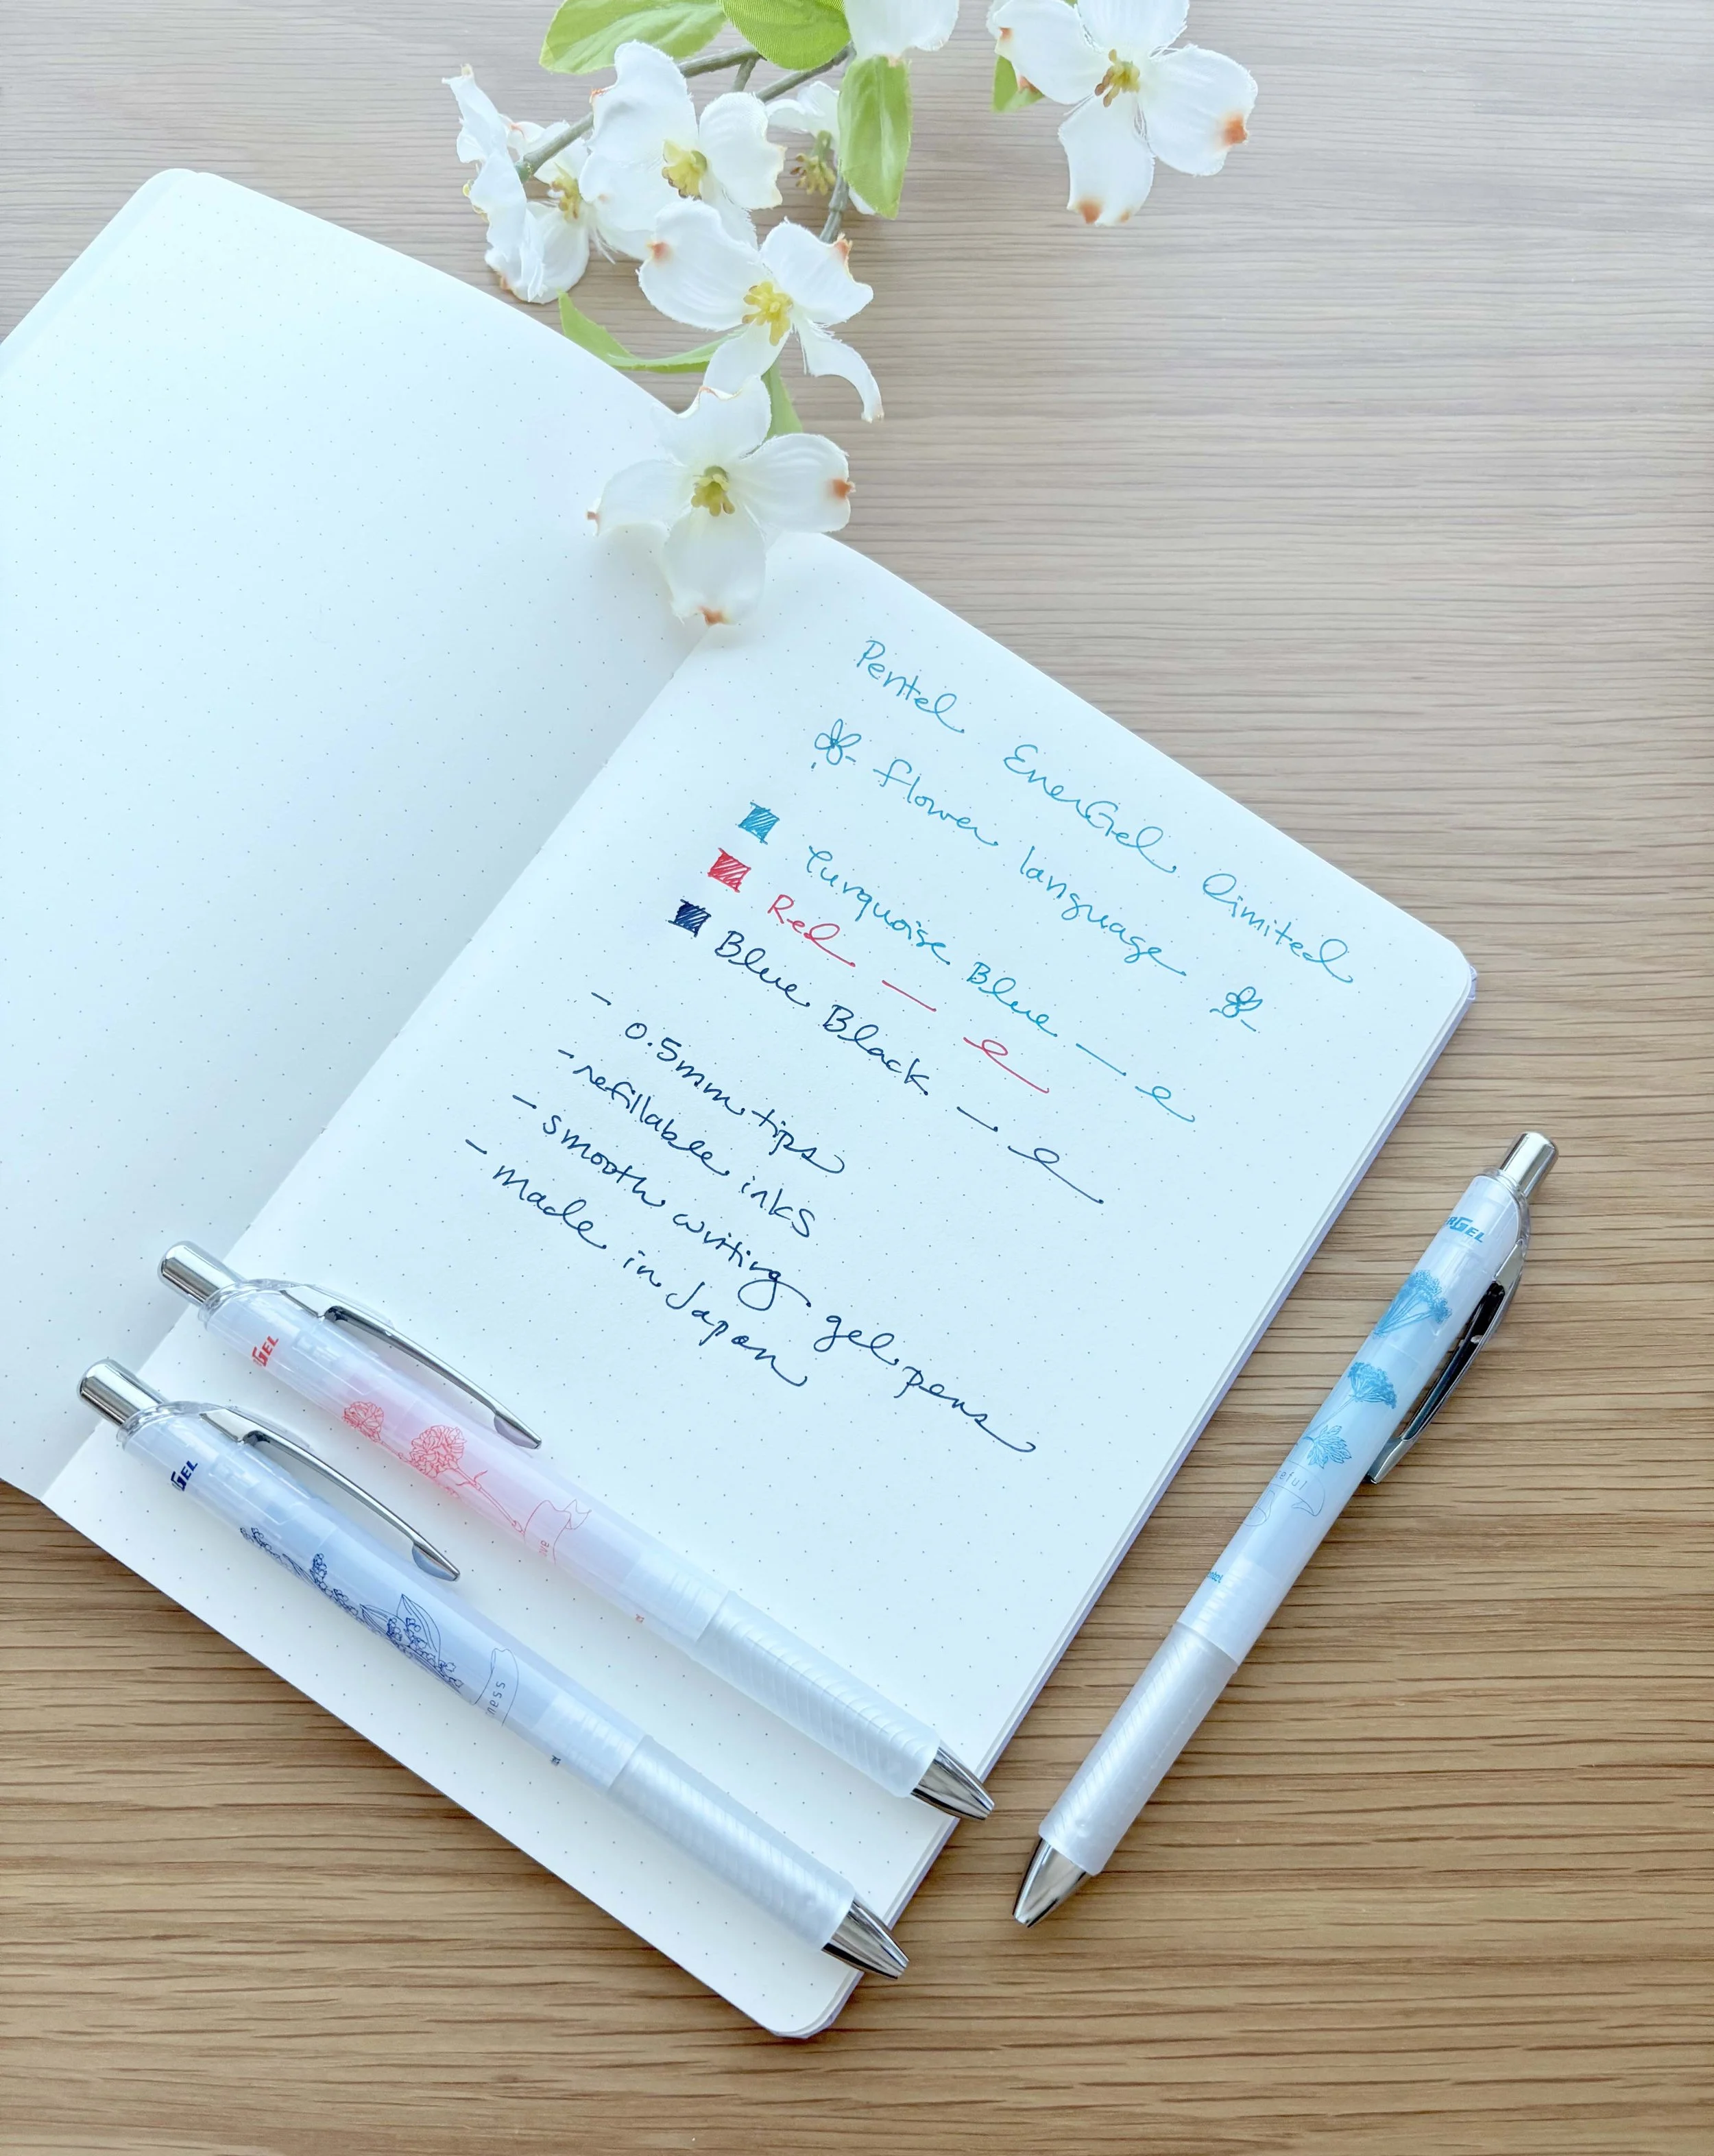 Pentel EnerGel limited
flower language
Turquoise Blue
Red
Blue Black
- 0.5mm tips
- refillable inks
- smooth writing gel pens
- made in Japan
GEL
GEL
RGEL
eful
ntel
ness